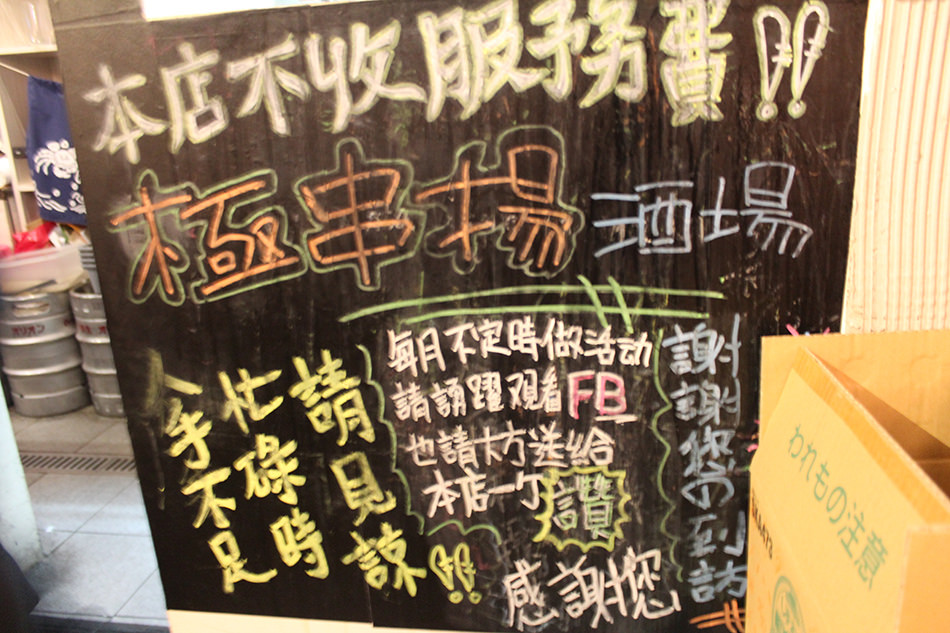 本店不收服務費!!
極串場 酒場
人手不足
忙碌時
請見諒!!
每月不定時做活动
請誘躍观看FB
也請大方送給
本店一个讚
感謝您
謝謝您の到訪
われもの注意
オリオン